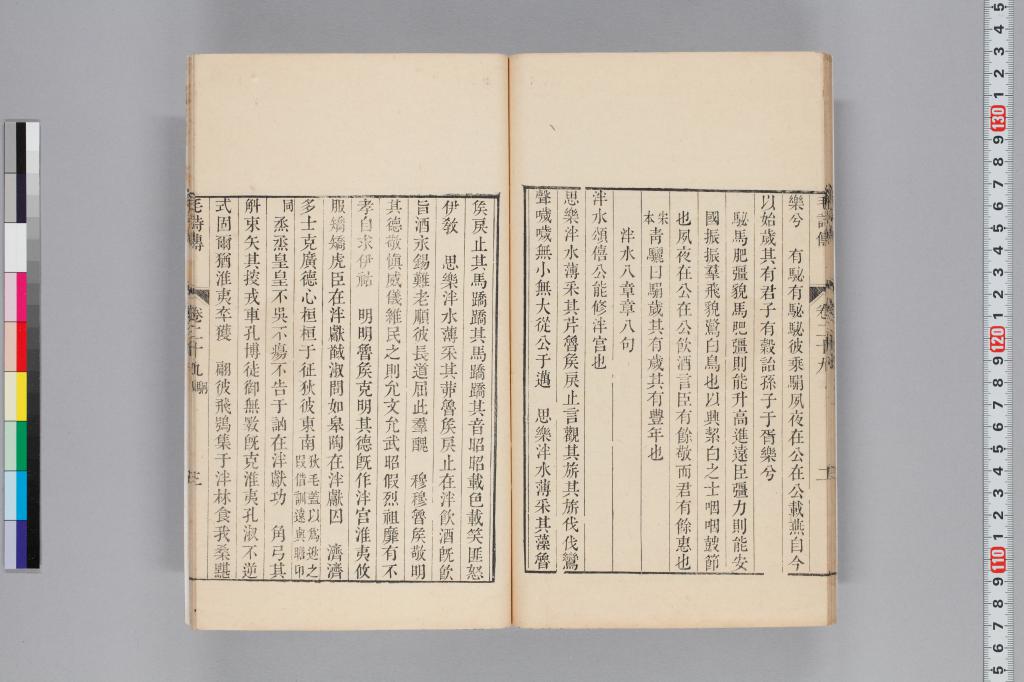 樂兮　有駜有駜駜彼乘駽夙夜在公在公載燕自今
以始歲其有君子有穀詒孫子于胥樂兮
駜馬肥彊貌馬肥彊則能升高進遠臣彊力則能安
國振振羣飛貌鷺白鳥也以興絜白之士咽咽鼓節
也夙夜在公在公飲酒言臣有餘敬而君有餘惠也
宋本青驪曰駽歲其有歲其有豐年也
泮水八章章八句
泮水頌僖公能修泮宮也
思樂泮水薄采其芹魯矦戾止言觀其旂其旂伐伐鸞
聲噦噦無小無大從公于邁　思樂泮水薄采其藻魯
矦戾止其馬蹻蹻其馬蹻蹻其音昭昭載色載笑匪怒
伊敎　思樂泮水薄采其茆魯矦戾止在泮飲酒旣飲
旨酒永錫難老順彼長道屈此羣醜　穆穆魯矦敬明
其德敬愼威儀維民之則允文允武昭假烈祖靡有不
孝自求伊祜　明明魯矦克明其德旣作泮宮淮夷攸
服矯矯虎臣在泮獻馘淑問如皋陶在泮獻囚　濟濟
多士克廣德心桓桓于征狄彼東南狄毛蓋以爲逖之叚借訓遠與瞻卬
同烝烝皇皇不吳不瘍不告于訩在泮獻功　角弓其
觓束矢其搜戎車孔博徒御無斁旣克淮夷孔淑不逆
式固爾猶淮夷卒獲　翩彼飛鴞集于泮林食我桑黮
毛詩傳　卷二十九　駉　三